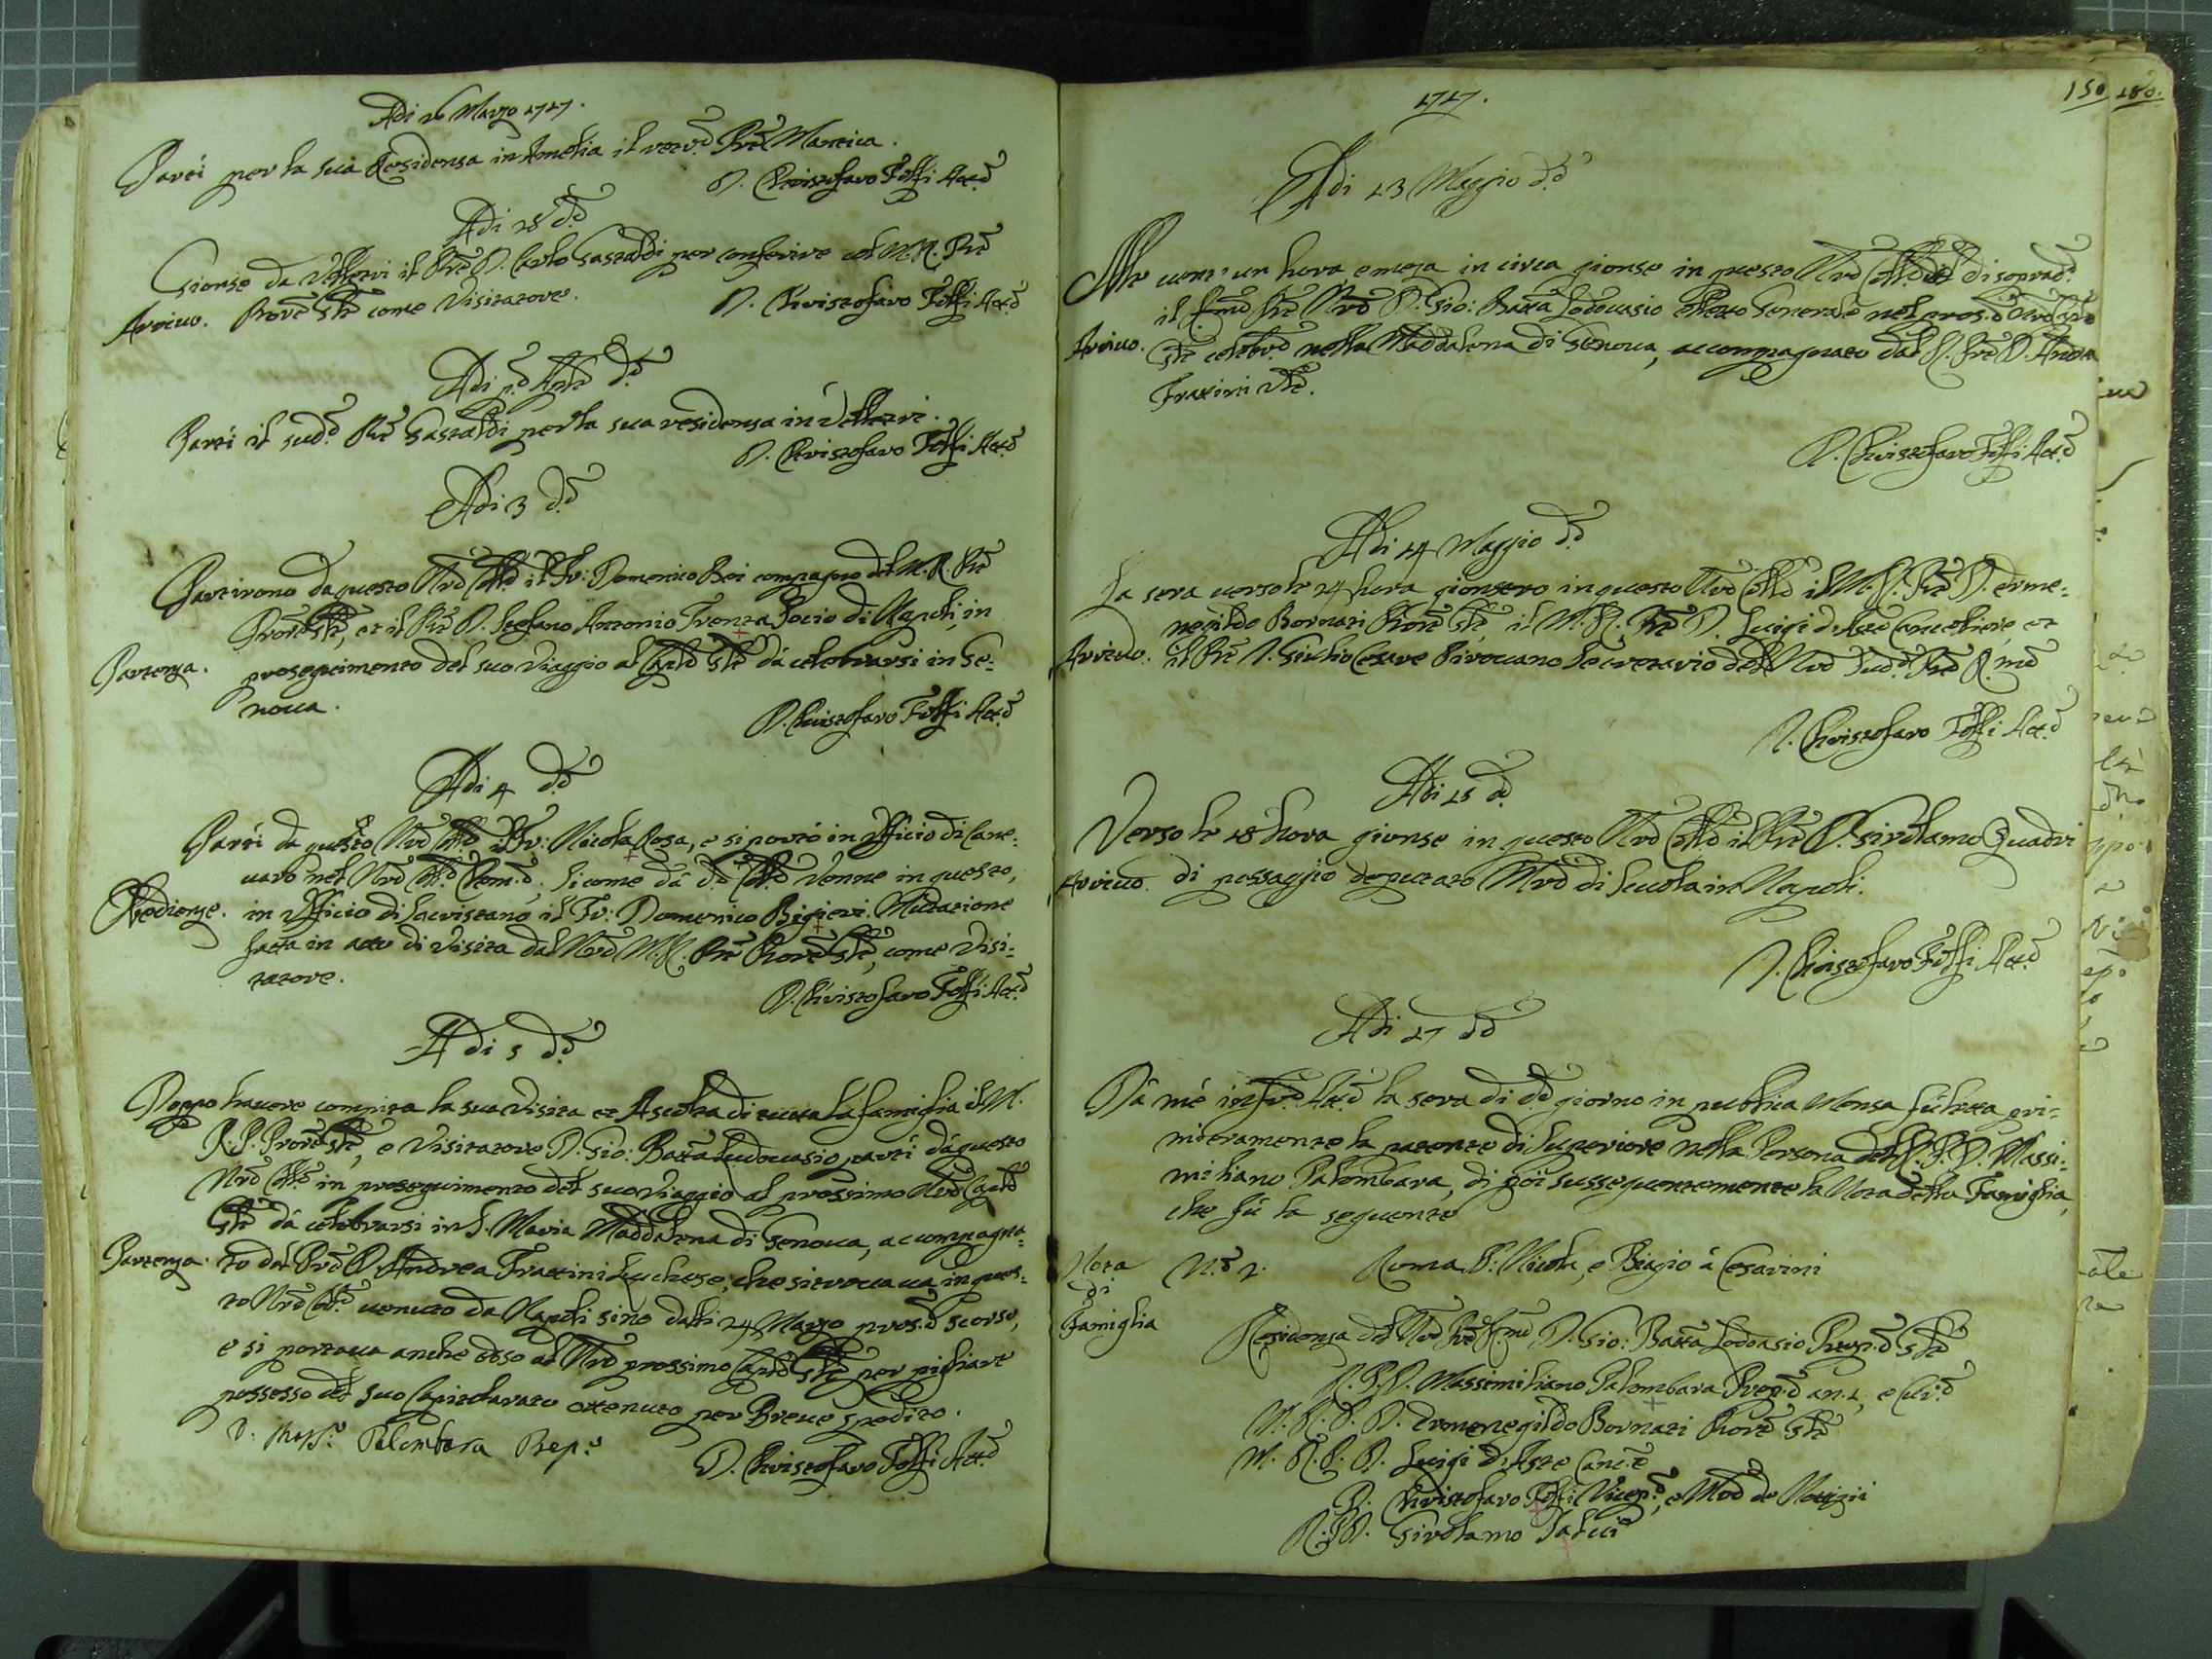 Adi 26 Marzo 1727.
Partì per la sua Residenza in Amelia il P're Manrica.
D. Christofaro Toffi Att.o
Adi 28 d.o
Gionse da Velletri il P're D. Carlo Gastaldi per conferire col M. R. P're
Arrivo. G'le come Visitatore.
D. Christofaro Toffi Att.o
Adi p.o Ap'le d.o
Partì il sud.o P're Gastaldi per la sua residenza in Velletri.
D. Christofaro Toffi Att.o
Adi 3 d.o
Partirono da questo N'ro Coll.o il Fr: Domenico Boi compagno del M. R. P're
G'le, et il P're D. Stefano Antonio Trenta Socio di Napoli, in
Partenza. proseguimento del suo viaggio al Cap'lo G'le dà celebrarsi in Ge=
noua.
D. Christofaro Toffi Att.o
Adi 4 d.o
Partì da questo N'ro Coll.o il Fr: Nicola Rosa, e si portò in Officio di Cane=
uaro nel N'ro Coll.o Clem.o, sicome dà d.o Coll.o venne in questo,
Obedienze. in Officio di Sacristano, il Fr: Domenico Bigieri. Mutatione
fatta in atto di Visita dal N'ro M. R. P're G'le, come Visi=
tatore.
D. Christofaro Toffi Att.o
Adi 5 d.o
Doppo hauere compita la sua Visita et Ascolta di tutta la famiglia il M.
R. P. G'le, e Visitatore D. Gio: Batta Lodouasio partì dà questo
N'ro Coll.o in proseguimento del suo Viaggio al prossimo N'ro Cap'lo
G'le dà celebrarsi in S. Maria Maddalena di Genoua, accompagna=
Partenza. to dal P're D. Andrea Frattini Lucchese, che si trouaua in ques=
to N'ro Coll.o uenuto da Napoli sino dalli 24 Marzo pros.o scorso,
e si portaua anche esso al N'ro prossimo Cap'lo G'le per pigliare
possesso del suo Capitolarato ottenuto per Breue spedito.
D. Mass.o Palombara Prep.o
D. Christofaro Toffi Att.o
1727.
150 180.
Adi 13 Maggio d.o
Alle uent'un hora e meza in circa gionse in questo N'ro Coll.o di soprad.o
il R'mo P're N'ro D. Gio: Batta Lodouasio eletto Generale nel pros.o N'ro Cap'lo
Arriuo. G'le celebr.o nella Maddalena di Genoua, accompagnato dal P're D. Andrea
Frattini
D. Christofaro Toffi Att.o
Adi 14 Maggio d.o
La sera uerso le 24 hora gionsero in questo N'ro Coll.o il M. R. P're D. Erme=
negildo Bornati G'le, il M. R. P're D. Luigi d'Aste Cancelliere, et
Arriuo. il P're D. Giulio Cesare Pirouano Secretario del N'ro Sud.o P're R.mo
D. Christofaro Toffi Att.o
Adi 15 d.o
Verso le 18 hora gionse in questo N'ro Coll.o il P're D. Girolamo Quadri
Arriuo. di passaggio deputato M'ro di Scuola in Napoli.
D. Christofaro Toffi Att.o
Adi 17 d.o
Dà mè infr.o Att.o la sera di d.o giorno in publica Mensa fù letta pri=
mieramente la patente di Superiore nella Persona del P. D. Massi=
miliano Palombara, di poi susseguentemente la Nota della Famiglia,
che fù la seguente
Nota
di
Famiglia
Roma SS: Nicola, e Biagio à Cesarini
Residenza del N'ro P're R.mo D. Gio: Batta Lodoasio Prep.o G'le
R. P. D. Massimiliano Palombara Prep.o an. 1, e
M. R. P. D. Ermenegildo Bornati G'le
M. R. P. D. Luigi d'Aste Canc.e
D. Christofaro Toffi Vicep.o, e M'ro de Nouizii
R. P. D. Girolamo Salui